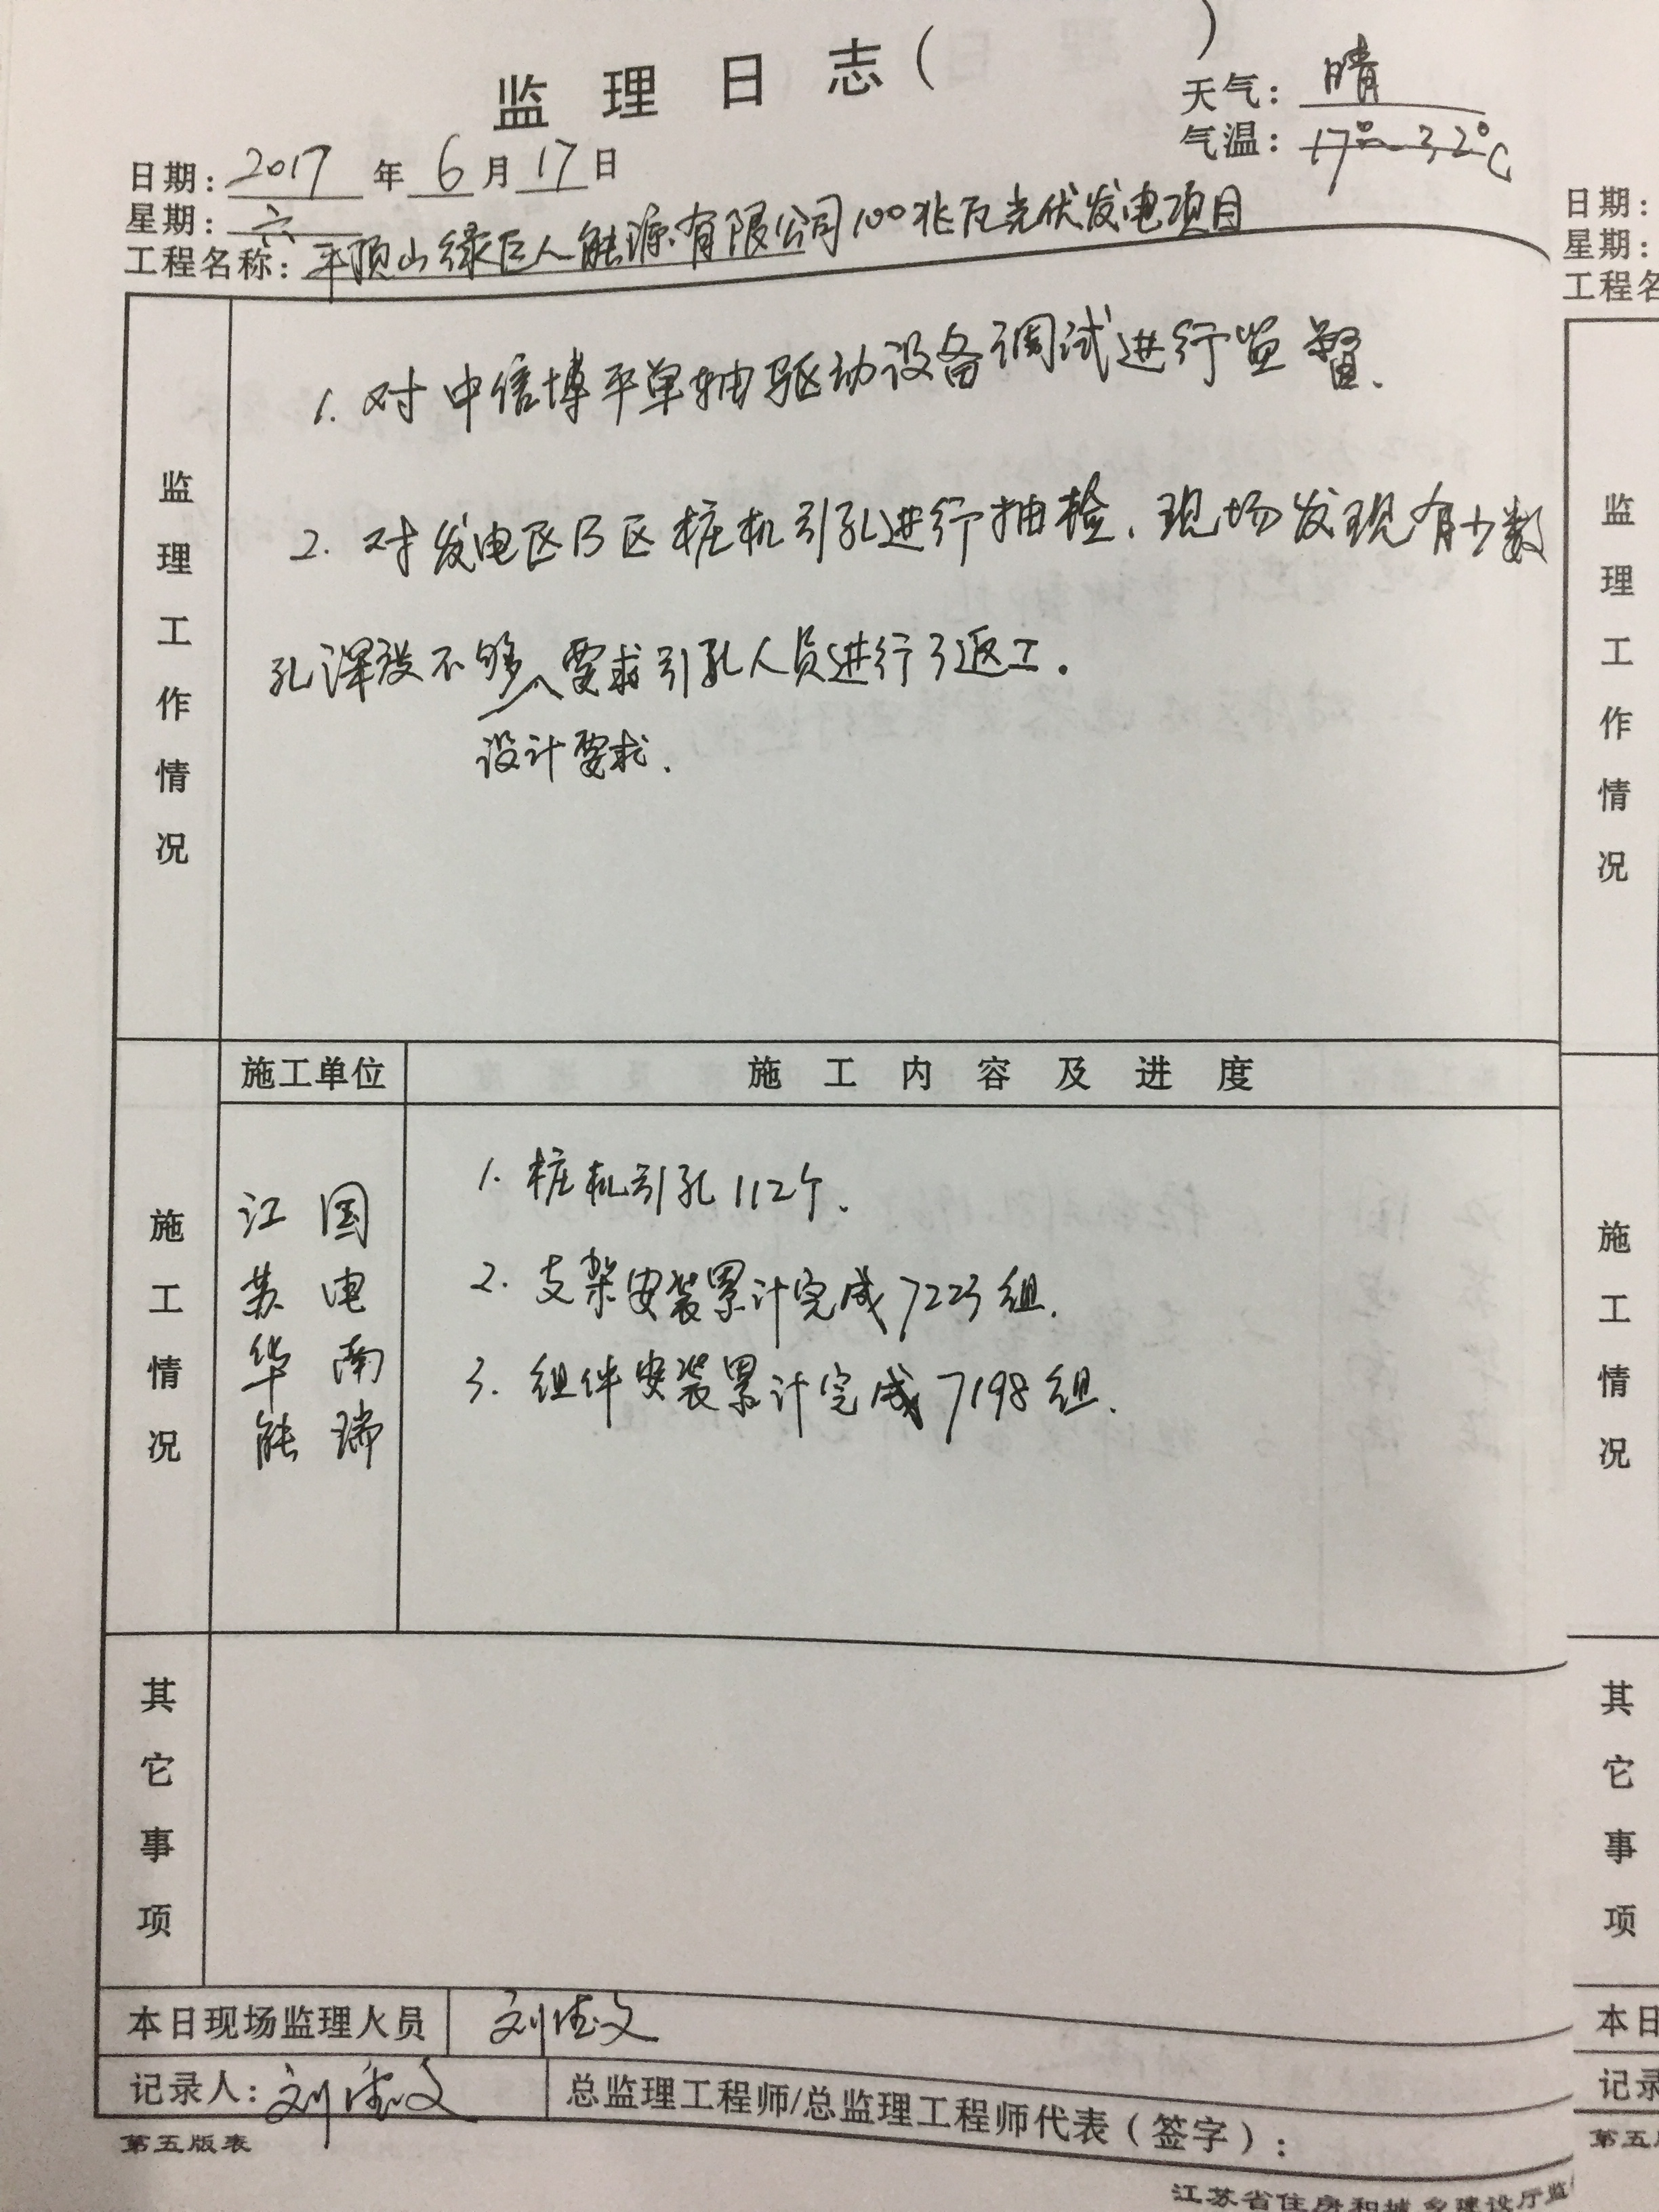 监理日志（ ）
天气：晴
气温：17°~32℃
日期：2017年6月17日
星期：六
工程名称：平顶山绿巨人能源有限公司100兆瓦光伏发电项目
监理工作情况
1. 对中信博平单轴驱动设备调试进行监督.
2. 对发电区B区桩机引孔进行抽检.现场发现有少数
孔深没不够 要求引孔人员进行了返工.
设计要求.
施工情况
施工单位
施工内容及进度
江苏华能
国电南瑞
1. 桩机引孔112个.
2. 支架安装累计完成7223组.
3. 组件安装累计完成7198组.
其它事项
本日现场监理人员
刘德文
记录人：刘德文
总监理工程师/总监理工程师代表（签字）：
第五版表
江苏省住房和城乡建设厅监
日期：
星期：
工程名
监理工作情况
施工情况
其它事项
本日
记录
第五